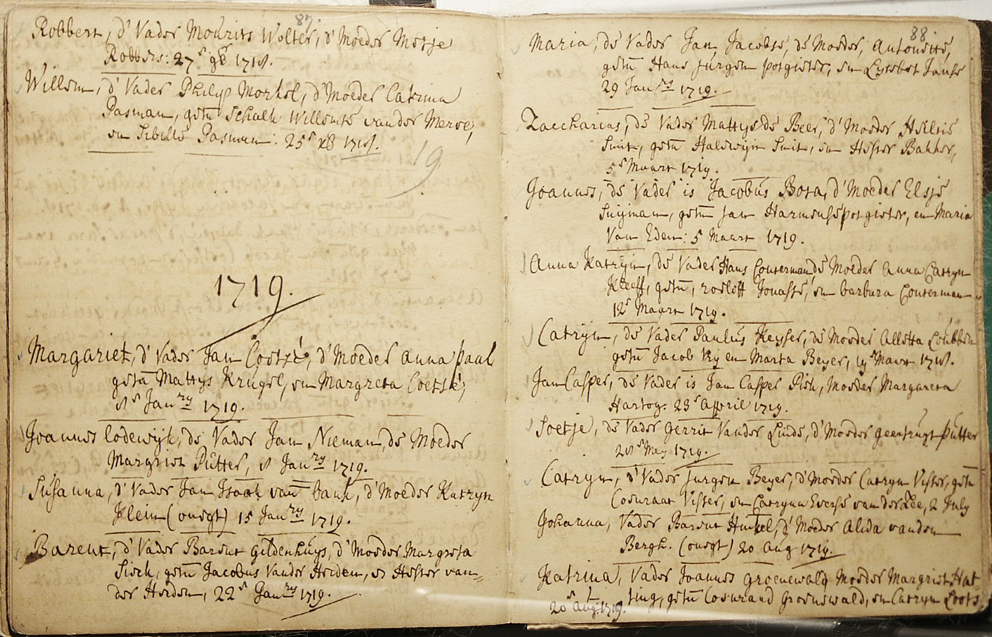 87.
Robbert, d' Vader Mourits Wolter, d' Moeder Metje
Robbers: 27 1718.
Willem, d' Vader Philip Morkel, d' Moeder Catrina
Pasman, getu Schalk Willemse van der Merwe,
en Sibilla Pasman: 25 1718.
19
1719.
Margariet, d' Vader Jan Coetzé, d' Moeder Anna Paal
getu Mattys Krugel, en Margreta Coetsé,
Janry 1719.
Joannes Lodewijk, de Vader Jan Nieman, de Moeder
Margriet Putter, Janry 1719.
Susanna, d' Vader Jan Isaak van, d' Moeder Katryn
Klein (onegt) 15 Janry 1719.
Barent, d' Vader Barent Gildenhuys, d' Moeder Margreta
getu Jacobus vander Heiden, en Hester van-
der Heiden, 22 Janry 1719.
88
Maria, de Vader Jan Jacobse, de Moeder,
getu Hans Jurgen Potgieter, en Lysebet Janse
29 Janry 1719.
Zaccharias, de Vader Mattys de Beer, d' Moeder Hilletie
Smit, getu Halewijn Smit, en Hester Bakker,
5 Maart 1719.
Joannes, de Vader is Jacobus Bota, d' Moeder Elsje
Snijman, getu Jan Harmense Potgieter, en Maria
Van Eden: 5 Maart 1719.
Anna Katryn, de Vader Hans Conterman de Moeder Anna Catryn
Kleeff, getu, Roeloff Jonasse, en Barbara Conterman
12 Maart 1719.
Catryn, de Vader Paulus Keyser, de Moeder Aletta
getu Jacob Key en Marta Beyer, 19 Maart
Jan Casper, de Vader is Jan Casper Rich, Moeder Margareta
Hartog: 23 April 1719.
Soetje, de Vader Gerrit Vander Linde, d' Moeder Geertruyt Putter
May 1719.
Catryn, d' Vader Jurgen Beyer, d' Moeder Catryn Viser, getu
Coenraat Viser, en Catryna Everse van der Zee, 2 July
Johanna, Vader Barent Hinkel, d' Moeder Alida vanden
Bergh. (onegt) 20 Aug 1719.
Katrina, Vader Joannes Groenewald Moeder Margriet Hat
ting, getu Coenraad Groenewald, en Catryn Loots
20 Aug 1719.